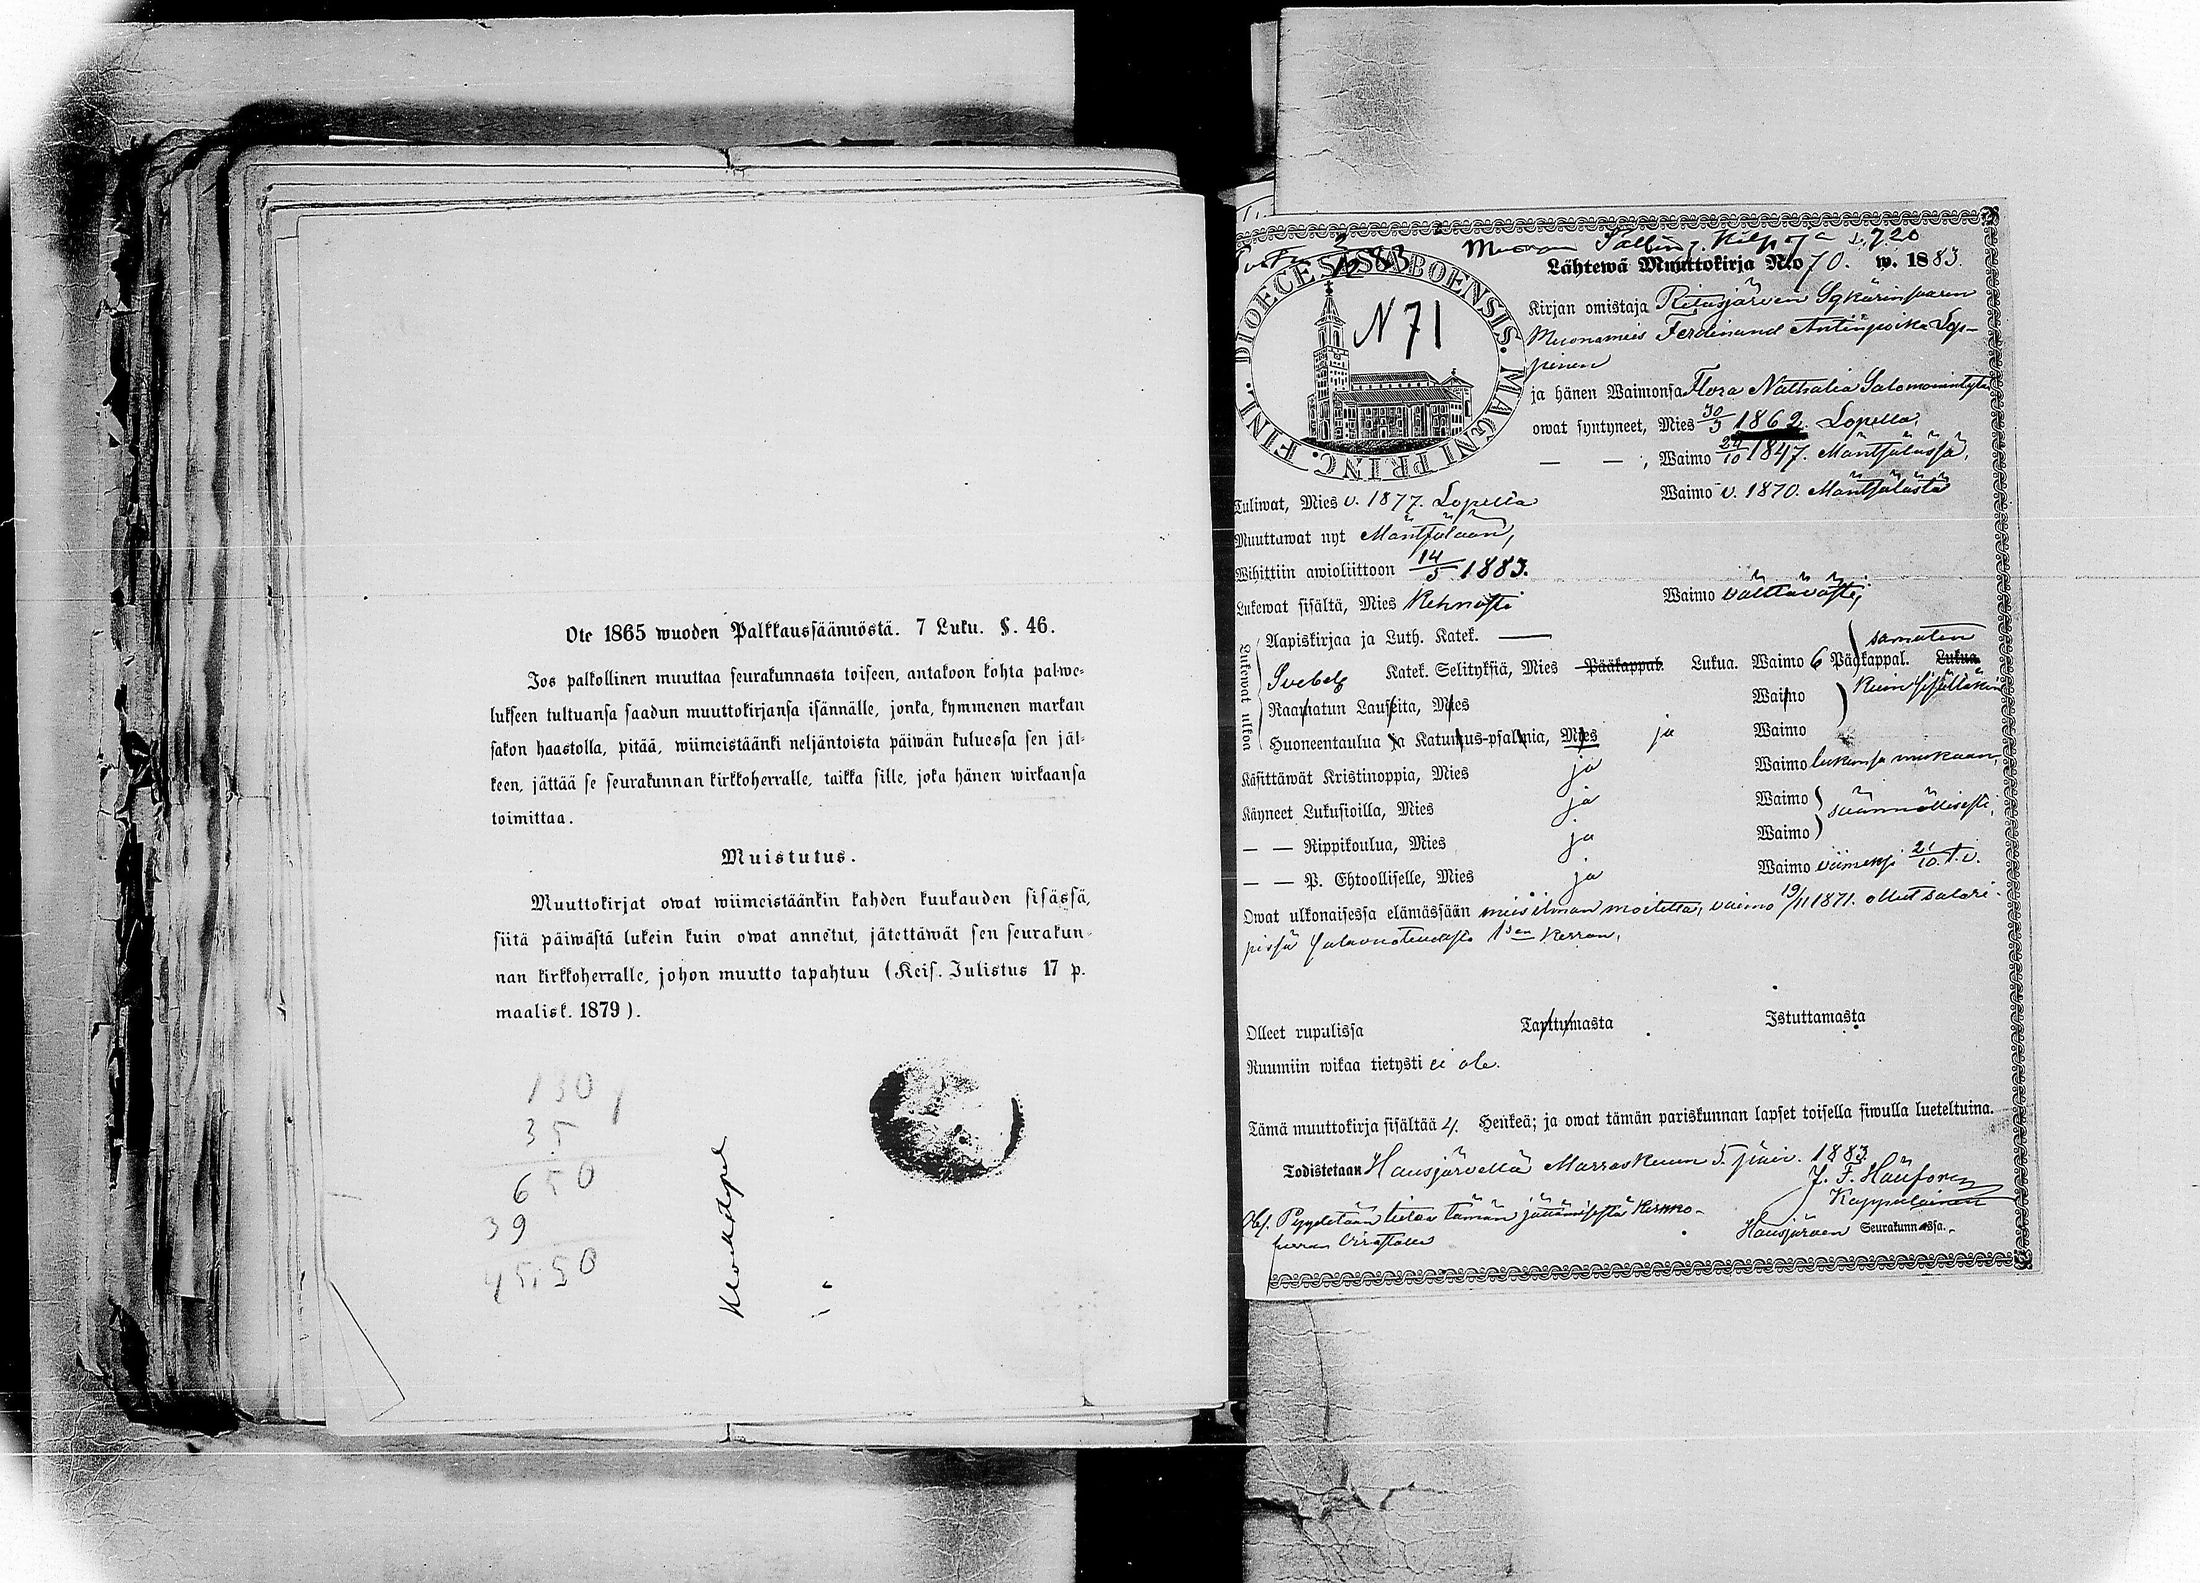 Ote 1865 wuoden Palkkaussäännöstä. 7 Luku. §. 46.
Jos palkollinen muuttaa seurakunnasta toiseen, antakoon kohta palwe-
lukseen tultuansa saadun muuttokirjansa isännälle, jonka, kymmenen markan
sakon haastolla, pitää, wiimeistäänki neljäntoista päiwän kuluessa sen jäl-
keen, jättää se seurakunnan kirkkoherralle, taikka sille, joka hänen wirkaansa
toimittaa.
Muistutus.
Muuttokirjat owat wiimeistäänkin kahden kuukauden sisässä,
siitä päiwästä lukein kuin owat annetut, jätettäwät sen seurakun-
nan kirkkoherralle, johon muutto tapahtuu (Keis. Julistus 17 p.
maalisk. 1879).
130
35
650
39
4550
DIOECESIS ABOENSIS. MAGNI PRINC. FINL.
N 71
Lähtewä Muuttokirja N:o 70. w. 1883.
Kirjan omistaja
Muonamies Ferdinand Antinpoika Lep-
pinen
ja hänen Waimonsa Flora Nathalia Salomonintytär
owat syntyneet, Mies 30/3 1862. Lopella,
— — , Waimo 24/10 1847. Mäntsälässä,
Tuliwat, Mies v. 1877. Lopelta Waimo v. 1870. Mäntsälästä
Muuttawat nyt Mäntsälään,
Wihittiin awioliittoon 14/5 1883.
Lukewat sisältä, Mies Kehnosti Waimo välttävästi,
Lukewat ulkoa
Aapiskirjaa ja Luth. Katek. —
Svebelg Katek. Selityksiä, Mies Pääkappal. Lukua. Waimo 6 Pääkappal. Lukua. samaten
Raamatun Lauseita, Mies Waimo kuin sisältäkin
Huoneentaulua ja Katumus-psalmia, Mies ja Waimo
Käsittäwät Kristinoppia, Mies ja Waimo lukunsa mukaan,
Käyneet Lukusioilla, Mies ja Waimo säännöllisesti,
— — Rippikoulua, Mies ja Waimo
— — P. Ehtoolliselle, Mies ja Waimo viimeksi 21/10 t. v.
Owat ulkonaisessa elämässään mies ilman moitetta, vaimo 19/11 1871. ollut salari-
pissä salavuoteudesta 1sen kerran,
Olleet rupulissa Tarttumasta Istuttamasta
Ruumiin wikaa tietysti ei ole.
Tämä muuttokirja sisältää 4. Henkeä; ja owat tämän pariskunnan lapset toisella siwulla lueteltuina.
Todistetaan Hausjärvellä Marraskuun 5. päiv. 1883.
Kappalainen
Hausjärven Seurakunnassa.
Obs. Pyydetään tietoa tämän jättämisestä Kirkko-
herran Virastolle